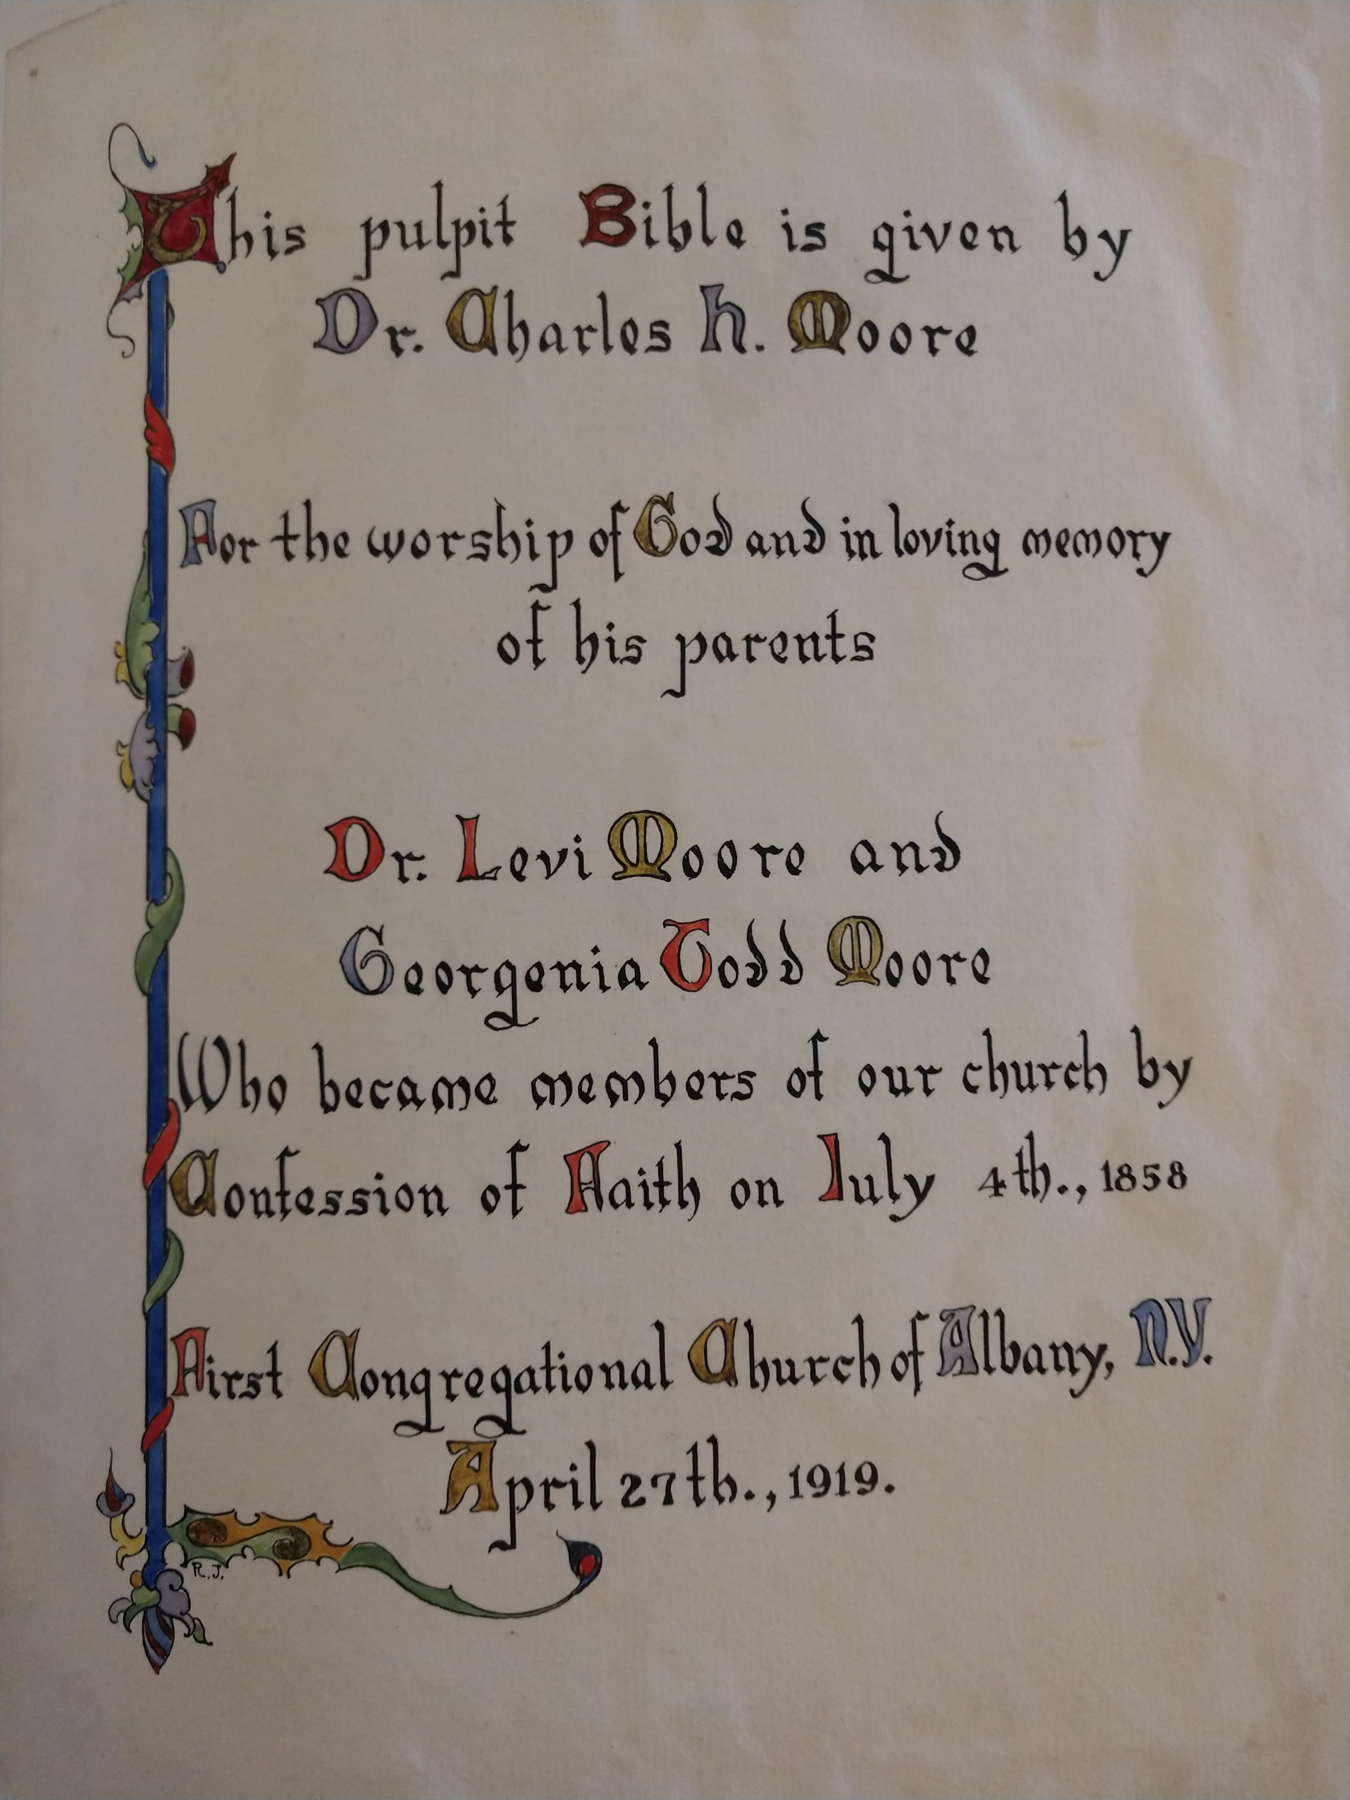 This pulpit Bible is given by
Dr. Charles H. Moore
For the worship of God and in loving memory
of his parents
Dr. Levi Moore and
Georgenia Todd Moore
Who became members of our church by
Confession of Faith on July 4th., 1858
First Congregational Church of Albany, N.Y.
April 27th., 1919.
R.J.